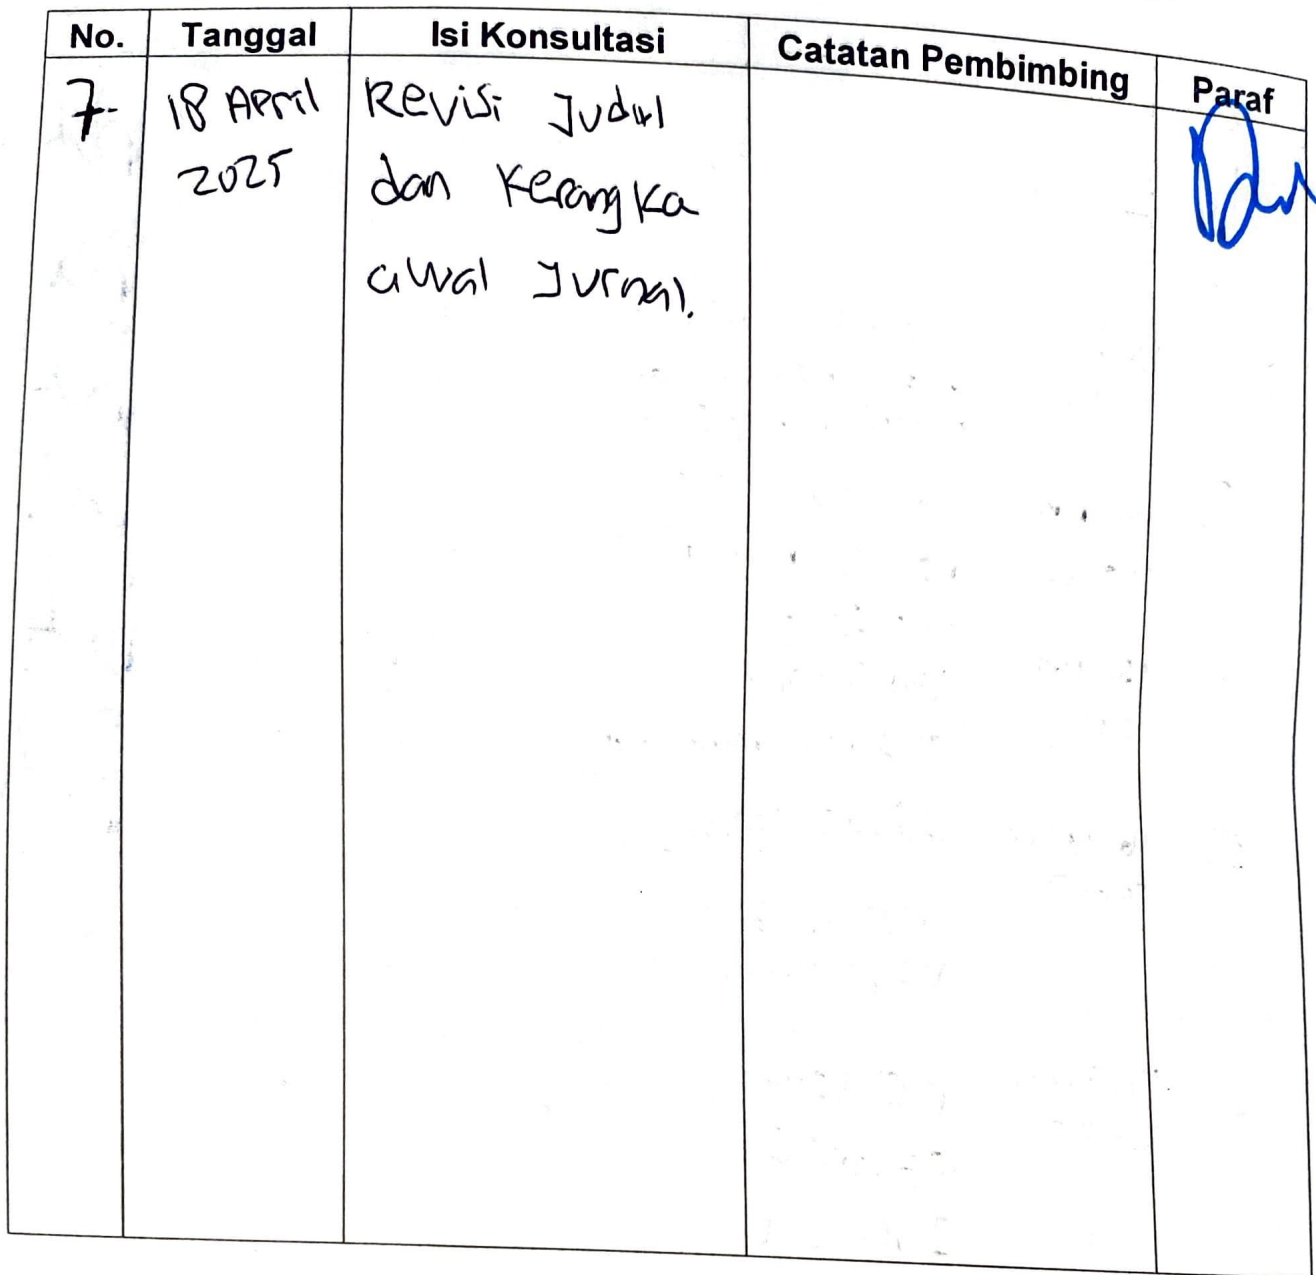 No. Tanggal Isi Konsultasi Catatan Pembimbing Paraf
7. 18 April Revisi Judul
2025 dan Kerangka
awal Jurnal.